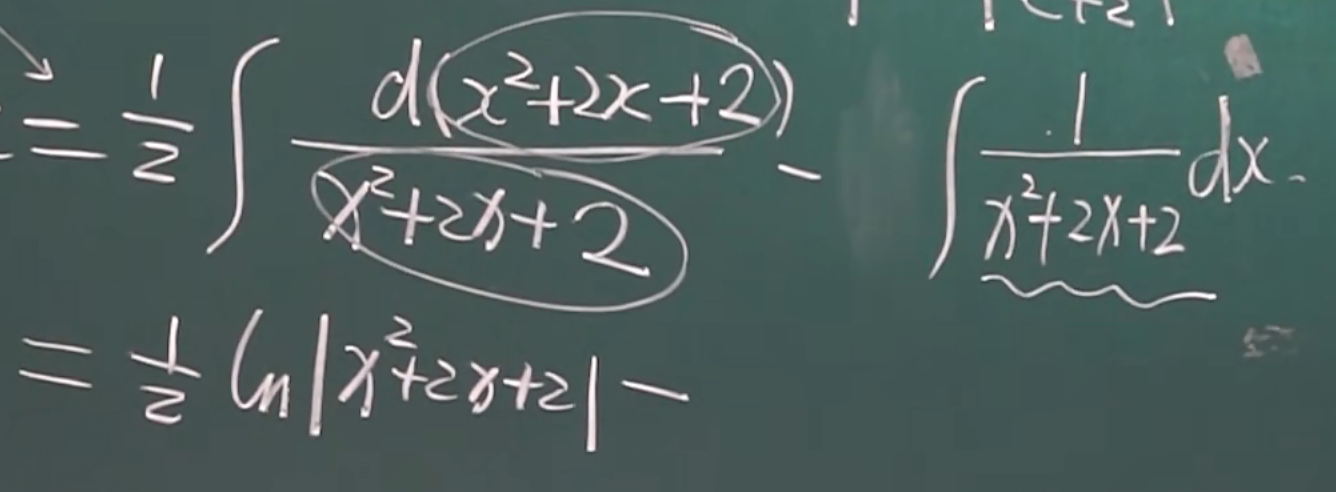 = 1/2 ∫ d(x²+2x+2)/(x²+2x+2) - ∫ 1/(x²+2x+2) dx.
= 1/2 ln|x²+2x+2| -